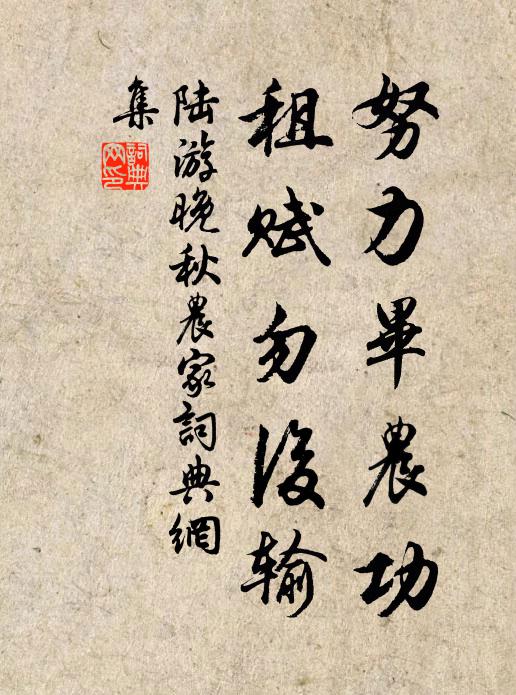 努力畢農功
租賦勿後輸
陸游晚秋農家詞典網
集
詞典網印